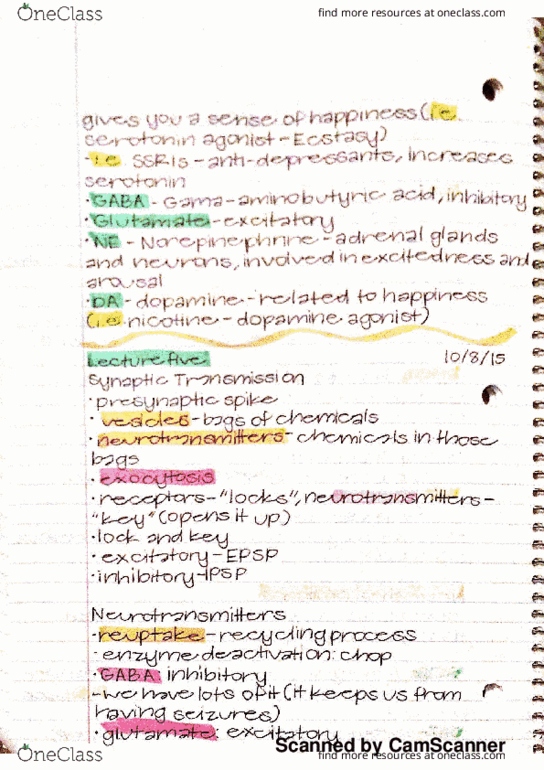 OneClass
find more resources at oneclass.com
gives you a sense of happiness (i.e.
serotonin agonist - Ecstasy)
- i.e SSRIs - anti-depressants, increases
serotonin
· GABA - Gama-aminobutyric acid, inhibitory
· Glutamate - excitatory
· NE - Norepinephrine - adrenal glands
and neurons, involved in excitedness and
arousal
· DA - dopamine - related to happiness
(i.e. nicotine - dopamine agonist)
Lecture five 10/8/15
Synaptic Transmission
· presynaptic spike
· vesicles - bags of chemicals
· neurotransmitters - chemicals in those
bags
· exocytosis
· receptors - "locks", neurotransmitters -
"key" (opens it up)
· lock and key
· excitatory - EPSP
· inhibitory - IPSP
Neurotransmitters
· reuptake - recycling process
· enzyme deactivation: chop
· GABA: inhibitory
- we have lots of it (it keeps us from
having seizures)
· glutamate: excitatory
Scanned by CamScanner
OneClass
find more resources at oneclass.com